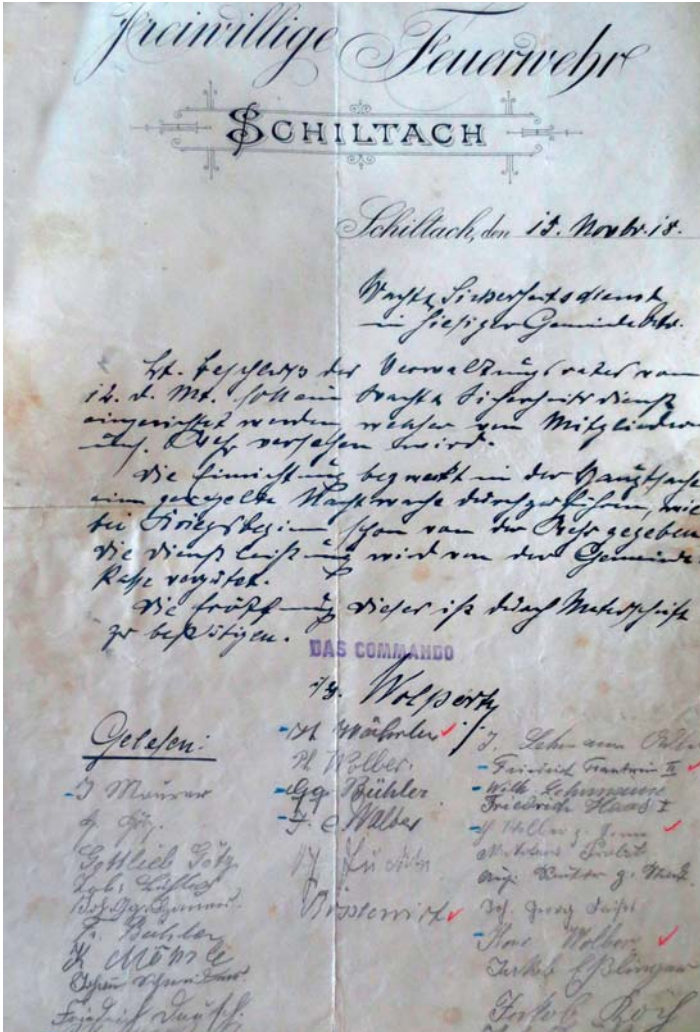 Freiwillige Feuerwehr
SCHILTACH
Schiltach, den 15. Novbr. 18.
Wacht & Sicherheitsdienst
in hiesiger Geminde betr.
Lt. Beschluss des Verwaltungsrates vom
12. d. Mt. soll ein Wacht & Sicherheitsdienst
eingerichtet werden, welcher von Mitglieder
uns. Wehr versehen wird.
Die Einrichtung bezweckt in der Hauptsache
eine geregelte Nachtwache durchzuführen, wie
bei Kriegsbeginn schon von der Wehr gegeben
Die Dienstleistung wird von der Gemeinde
Kasse vergütet.
Die Eröffnung dieses ist durch Unterschrift
zu bestätigen.
DAS COMMANDO
Wolpert
Gelesen:
J Maurer
Gottlieb Götz
Bühler
Friedrich Dausch
Wöhrle
Wolber
Gg. Bühler
J. Walter
J. Lehmann
Friedrich Trautwein II
Wilh. Lehmann
Friedrich Haas I
Joh. Georg
Wolber
Jakob Eßlinger
Jakob